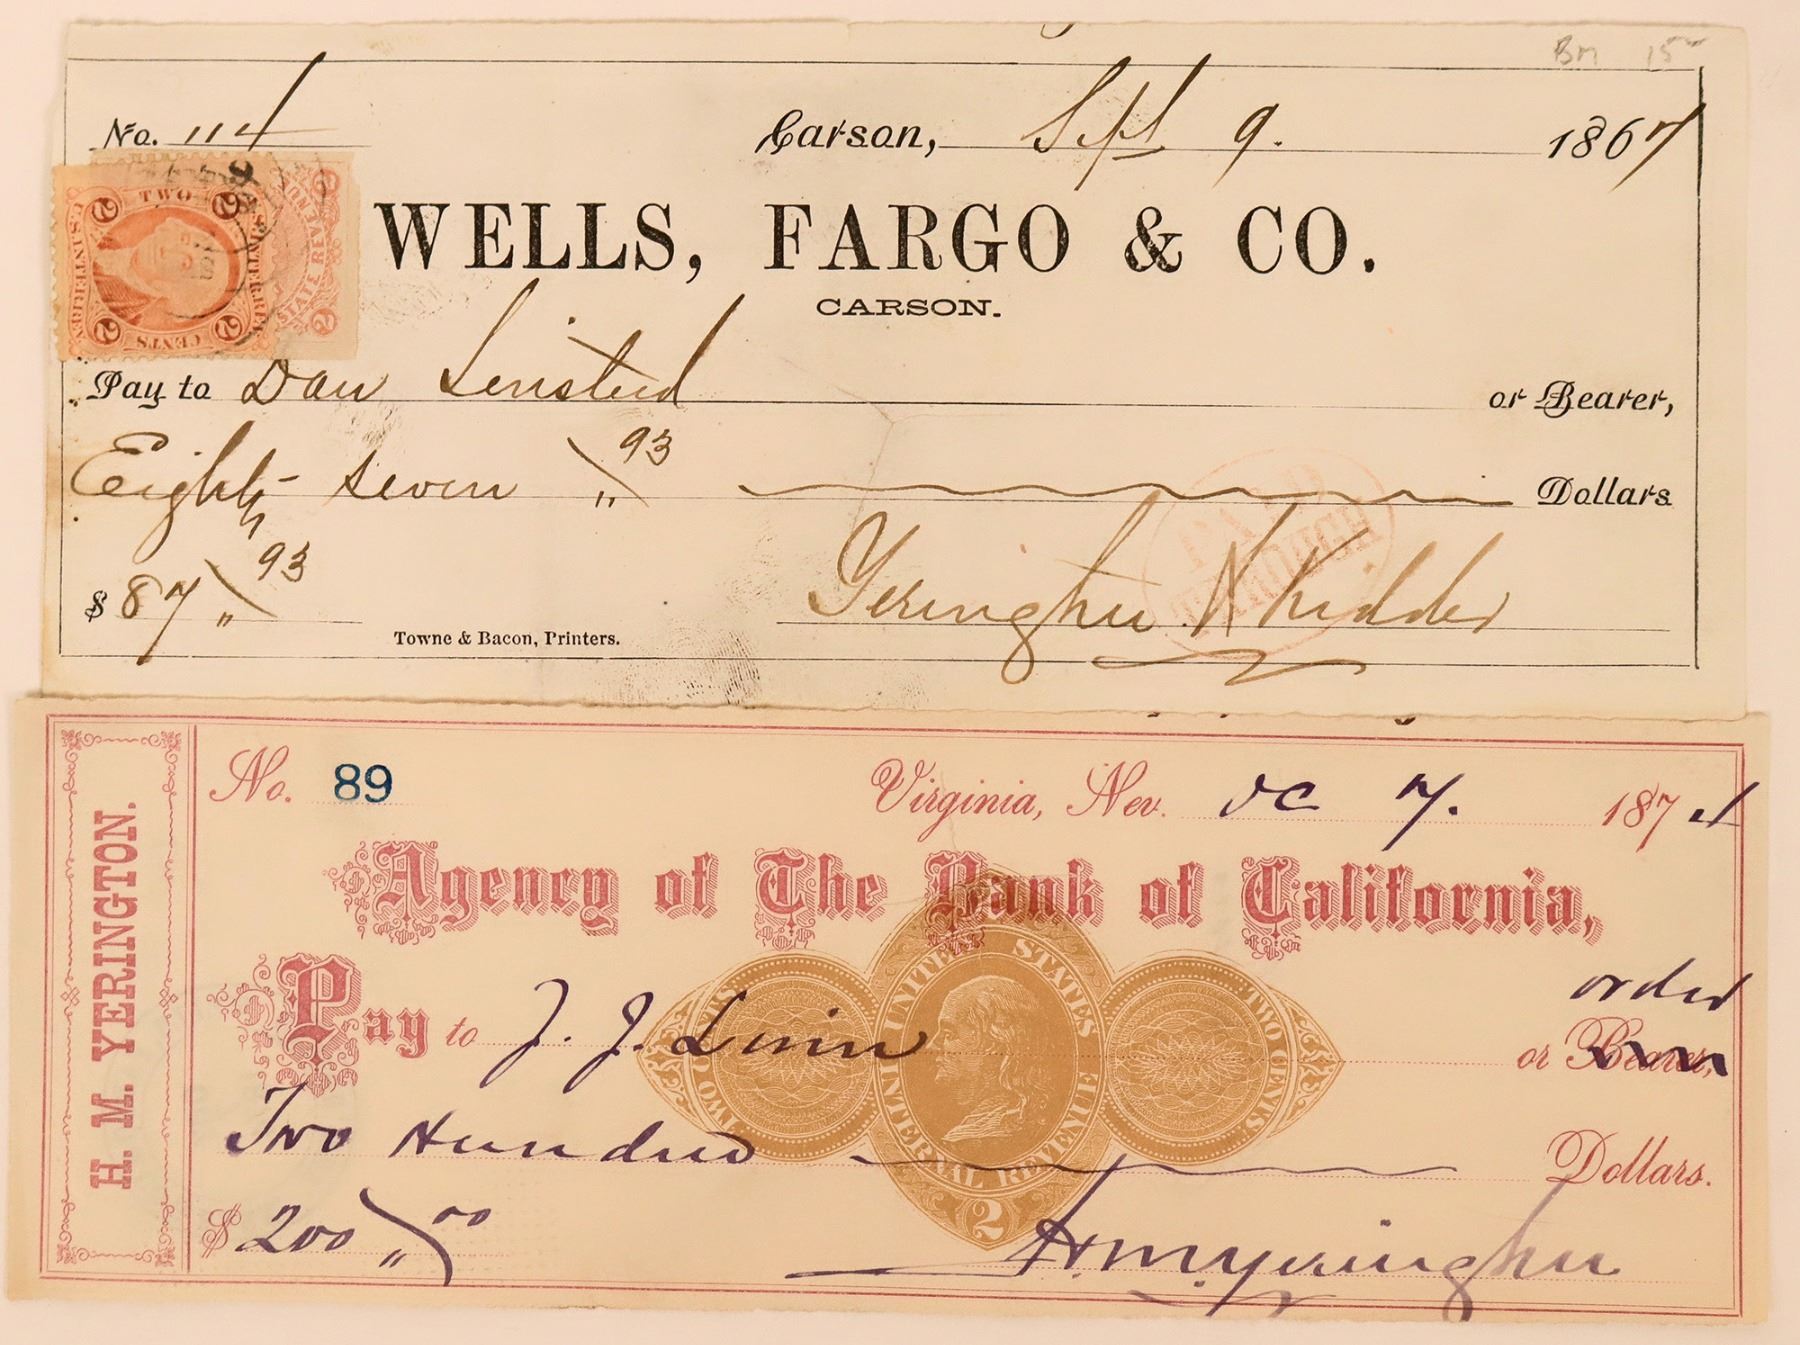 BM 15
No. 114 Carson, Sept 9. 1867
TWO
U.S. INTER. REV.
2 2
CENTS
2 2
STATE REVENUE
WELLS, FARGO & CO.
CARSON.
Pay to Dan or Bearer,
Eighty seven 93 Dollars
$ 87 93
PAID THROUGH
Towne & Bacon, Printers.
Yerington & Kidder
H. M. YERINGTON.
No. 89 Virginia, Nev. Oc 7. 1874
Agency of The Bank of California,
order
Pay to J. J. Linn or Bearer,
UNITED STATES INTERNAL REVENUE
TWO CENTS TWO CENTS
2
Two Hundred Dollars.
$ 200 00
H. M. Yerington